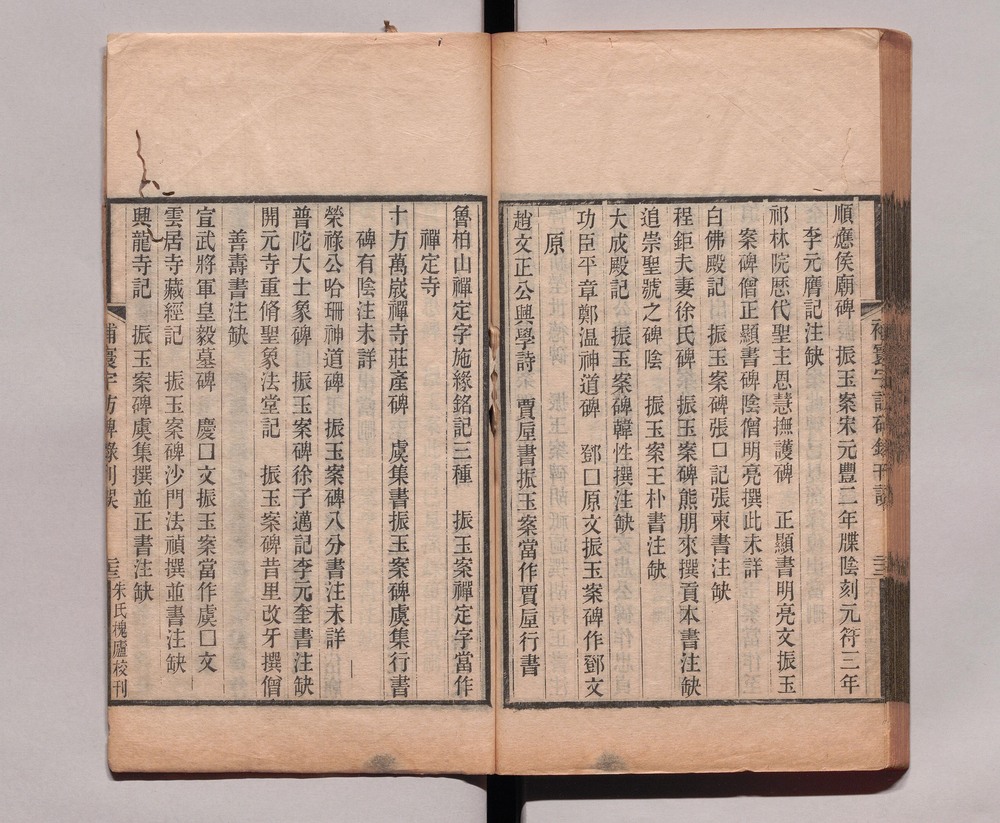 順應侯廟碑 振玉案宋元豐二年牒陰刻元符三年
李元膺記注缺
祁林院歷代聖主恩慧撫護碑 正顯書明亮文振玉
案碑僧正顯書碑陰僧明亮撰此未詳
白佛殿記 振玉案碑張口記張柬書注缺
程鉅夫妻徐氏碑 振玉案碑熊朋來撰貢本書注缺
追崇聖號之碑陰 振玉案王朴書注缺
大成殿記 振玉案碑韓性撰注缺
功臣平章鄭温神道碑 鄧口原文振玉案碑作鄧文
原
趙文正公興學詩 賈垕書振玉案當作賈垕行書
補寰宇訪碑錄刊誤 二三
魯柏山禪定字施緣銘記三種 振玉案禪定字當作
禪定寺
十方萬嚴禪寺莊產碑 虞集書振玉案碑虞集行書
碑有陰注未詳
榮祿公哈珊神道碑 振玉案碑八分書注未詳
普陀大士象碑 振玉案碑徐子邁記李元奎書注缺
開元寺重脩聖象法堂記 振玉案碑昔里改牙撰僧
善壽書注缺
宣武將軍皇毅墓碑 慶口文振玉案當作虞口文
雲居寺藏經記 振玉案碑沙門法禎撰並書注缺
興龍寺記 振玉案碑虞集撰並正書注缺
補寰宇訪碑錄刊誤 二三 朱氏槐廬校刊